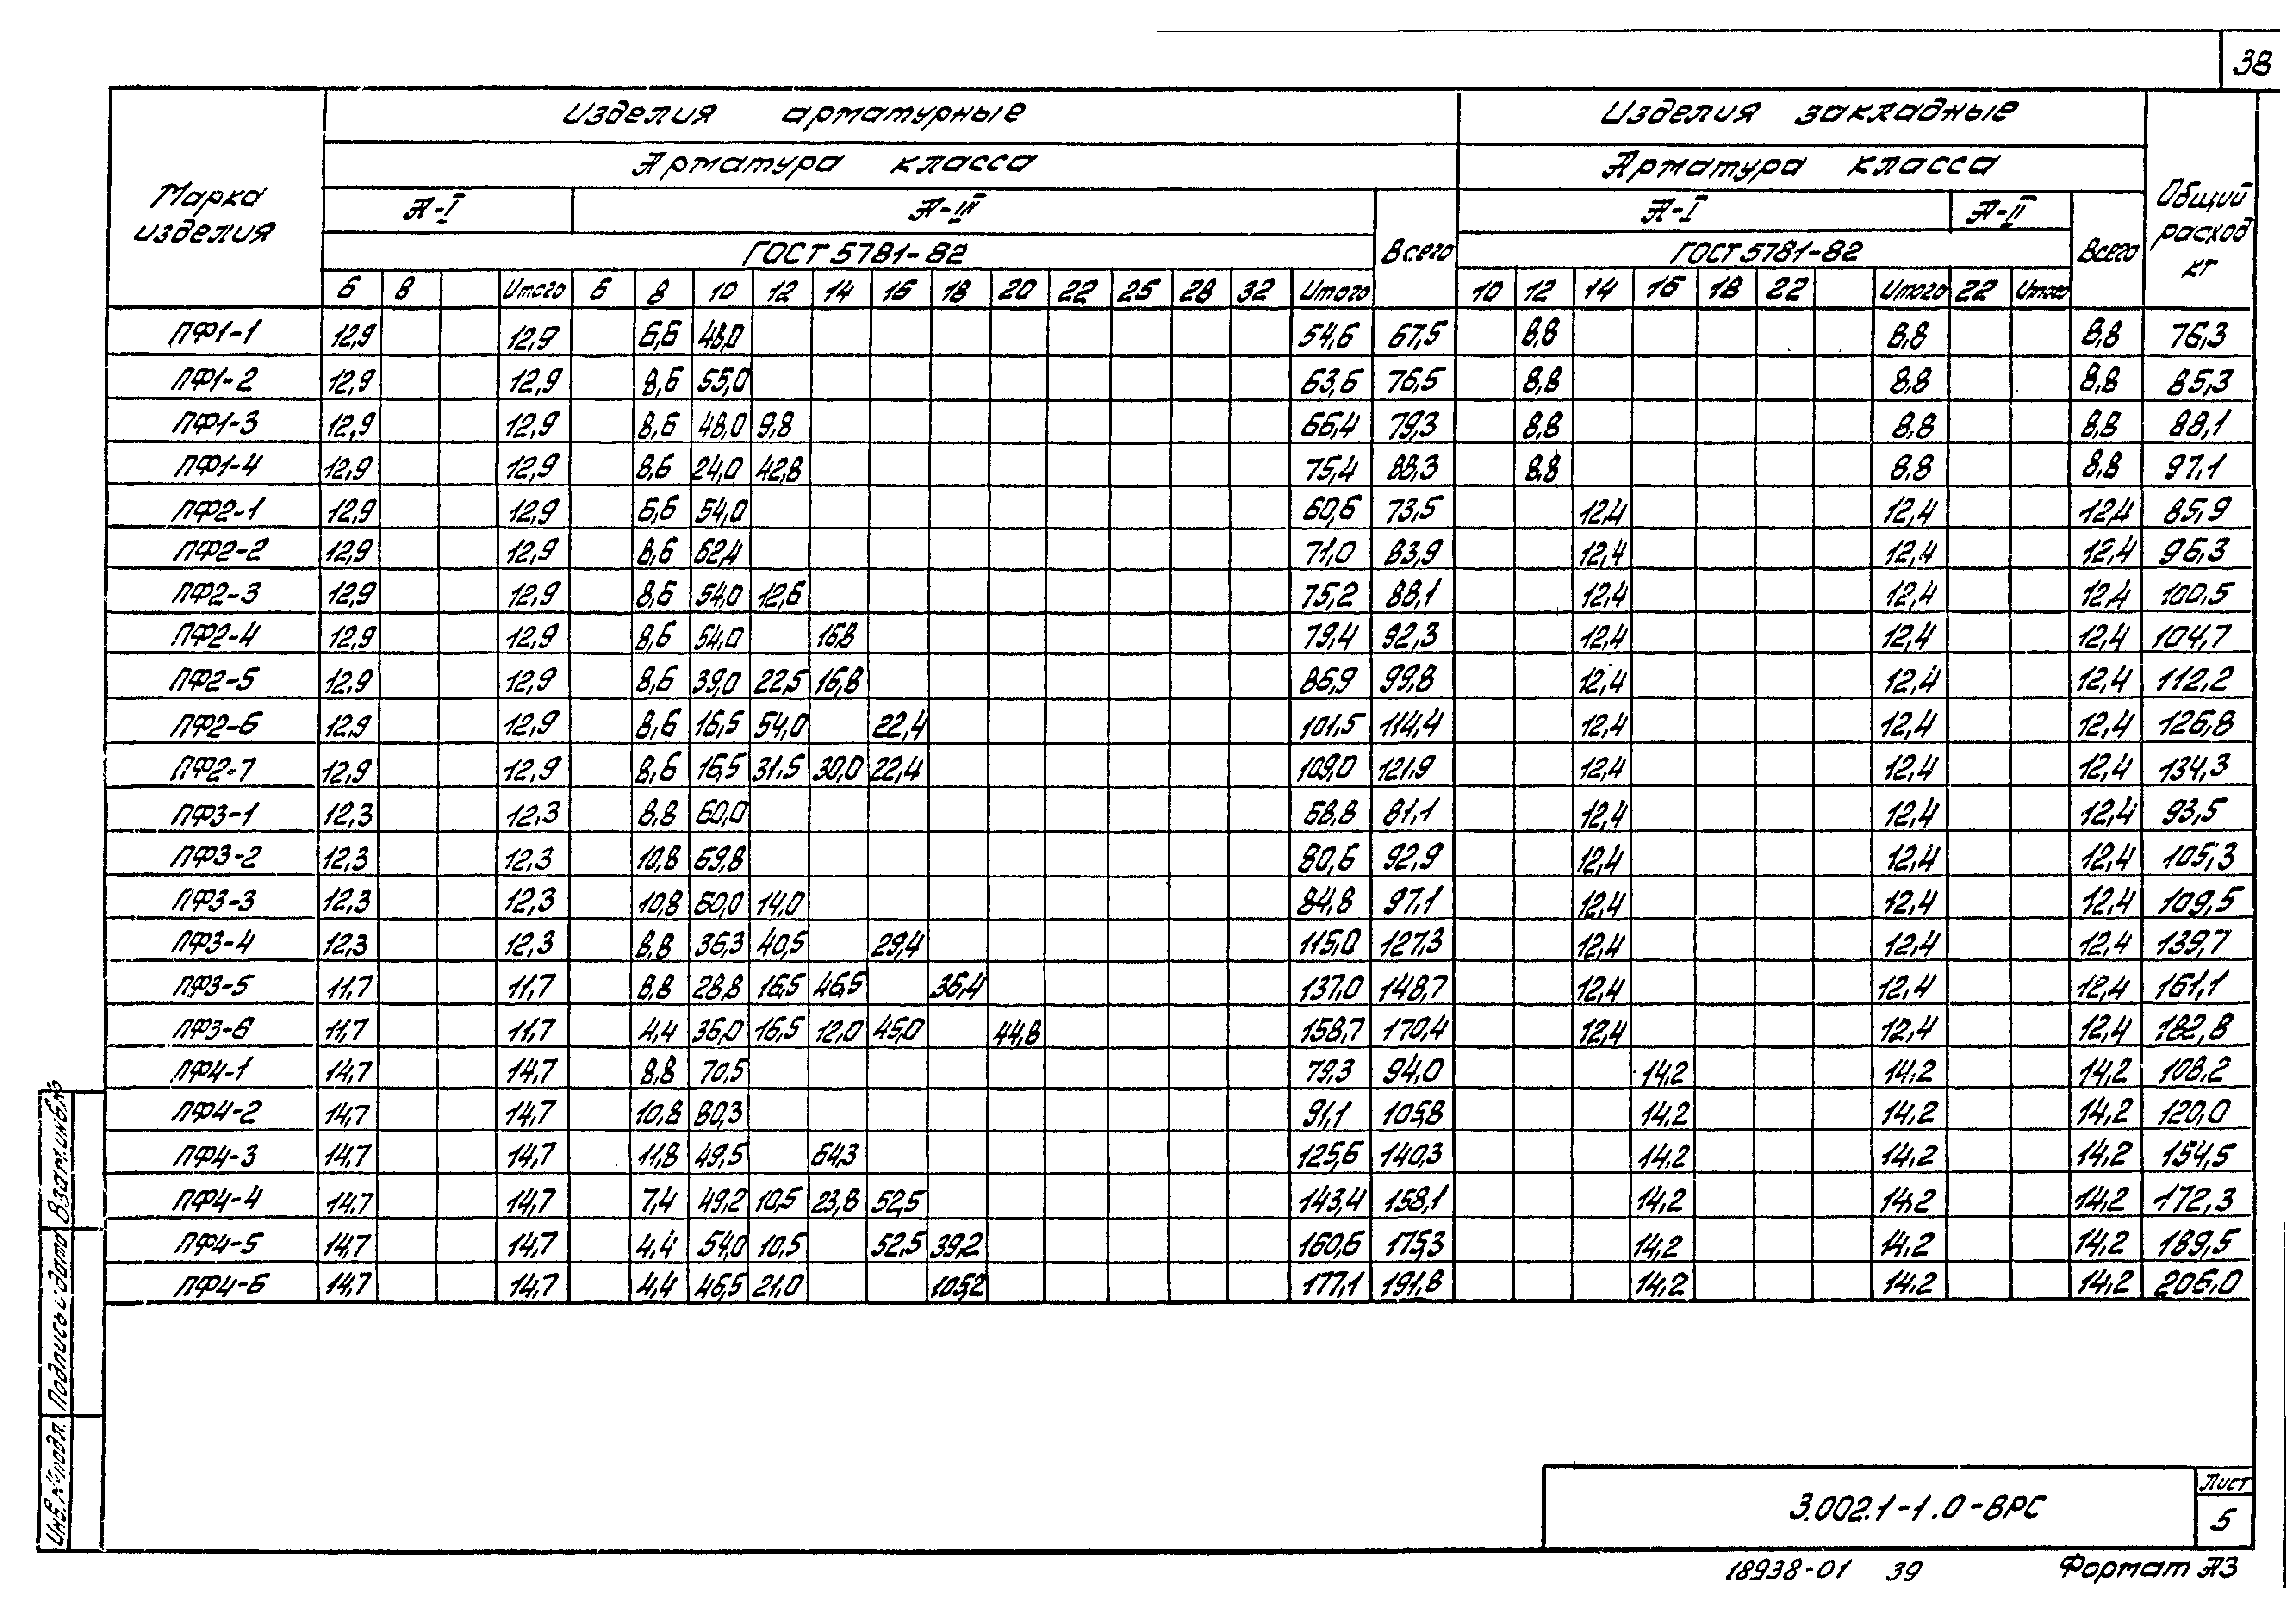 38
Марка изделия
Изделия арматурные
Изделия закладные
Общий расход кг
Арматура класса
Арматура класса
А-I
А-III
Всего
А-I
А-II
Всего
ГОСТ 5781-82
ГОСТ 5781-82
6 8 Итого 6 8 10 12 14 16 18 20 22 25 28 32 Итого 10 12 14 16 18 22 Итого 22 Итого
ПФ1-1 12,9 12,9 6,6 48,0 54,6 67,5 8,8 8,8 8,8 76,3
ПФ1-2 12,9 12,9 8,6 55,0 63,6 76,5 8,8 8,8 8,8 85,3
ПФ1-3 12,9 12,9 8,6 48,0 9,8 66,4 79,3 8,8 8,8 8,8 88,1
ПФ1-4 12,9 12,9 8,6 24,0 42,8 75,4 88,3 8,8 8,8 8,8 97,1
ПФ2-1 12,9 12,9 6,6 54,0 60,6 73,5 12,4 12,4 12,4 85,9
ПФ2-2 12,9 12,9 8,6 62,4 71,0 83,9 12,4 12,4 12,4 96,3
ПФ2-3 12,9 12,9 8,6 54,0 12,6 75,2 88,1 12,4 12,4 12,4 100,5
ПФ2-4 12,9 12,9 8,6 54,0 16,8 79,4 92,3 12,4 12,4 12,4 104,7
ПФ2-5 12,9 12,9 8,6 39,0 22,5 16,8 86,9 99,8 12,4 12,4 12,4 112,2
ПФ2-6 12,9 12,9 8,6 16,5 54,0 22,4 101,5 114,4 12,4 12,4 12,4 126,8
ПФ2-7 12,9 12,9 8,6 16,5 31,5 30,0 22,4 109,0 121,9 12,4 12,4 12,4 134,3
ПФ3-1 12,3 12,3 8,8 60,0 68,8 81,1 12,4 12,4 12,4 93,5
ПФ3-2 12,3 12,3 10,8 69,8 80,6 92,9 12,4 12,4 12,4 105,3
ПФ3-3 12,3 12,3 10,8 60,0 14,0 84,8 97,1 12,4 12,4 12,4 109,5
ПФ3-4 12,3 12,3 8,8 36,3 40,5 29,4 115,0 127,3 12,4 12,4 12,4 139,7
ПФ3-5 11,7 11,7 8,8 28,8 16,5 46,5 36,4 137,0 148,7 12,4 12,4 12,4 161,1
ПФ3-6 11,7 11,7 4,4 36,0 16,5 12,0 45,0 44,8 158,7 170,4 12,4 12,4 12,4 182,8
ПФ4-1 14,7 14,7 8,8 70,5 79,3 94,0 14,2 14,2 14,2 108,2
ПФ4-2 14,7 14,7 10,8 80,3 91,1 105,8 14,2 14,2 14,2 120,0
ПФ4-3 14,7 14,7 11,8 49,5 64,3 125,6 140,3 14,2 14,2 14,2 154,5
ПФ4-4 14,7 14,7 7,4 49,2 10,5 23,8 52,5 143,4 158,1 14,2 14,2 14,2 172,3
ПФ4-5 14,7 14,7 4,4 54,0 10,5 52,5 39,2 160,6 175,3 14,2 14,2 14,2 189,5
ПФ4-6 14,7 14,7 4,4 46,5 21,0 105,2 177,1 191,8 14,2 14,2 14,2 206,0
Инв.№подл. Подпись и дата Взам.инв.№
3.002.1-1.0-ВРС
Лист
5
18938-01 39 Формат А3